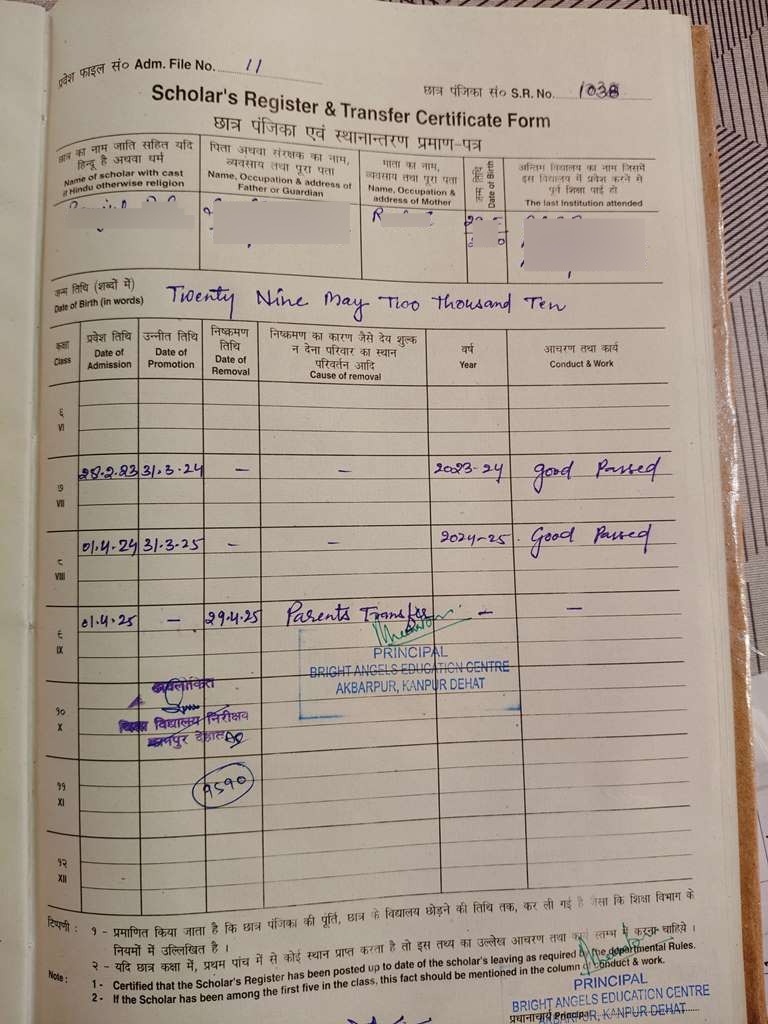 प्रवेश फाइल सं० Adm. File No. 11
छात्र पंजिका सं० S.R. No. 1038
Scholar's Register & Transfer Certificate Form
छात्र पंजिका एवं स्थानान्तरण प्रमाण-पत्र
छात्र का नाम जाति सहित यदि हिन्दू है अथवा धर्म
Name of scholar with cast if Hindu otherwise religion
पिता अथवा संरक्षक का नाम, व्यवसाय तथा पूरा पता
Name, Occupation & address of Father or Guardian
माता का नाम, व्यवसाय तथा पूरा पता
Name, Occupation & address of Mother
जन्म तिथि
Date of Birth
अन्तिम विद्यालय का नाम जिसमें इस विद्यालय में प्रवेश करने से पूर्व शिक्षा पाई हो
The last Institution attended
जन्म तिथि (शब्दों में)
Date of Birth (in words) Twenty Nine May Two Thousand Ten
कक्षा Class
प्रवेश तिथि Date of Admission
उन्नीत तिथि Date of Promotion
निष्क्रमण तिथि Date of Removal
निष्क्रमण का कारण जैसे देय शुल्क न देना परिवार का स्थान परिवर्तन आदि Cause of removal
वर्ष Year
आचरण तथा कार्य Conduct & Work
६
VI
७ 28.2.23 31.3.24 – – 2023-24 Good Passed
VII
८ 01.4.24 31.3.25 – – 2024-25 Good Passed
VIII
९ 01.4.25 – 29.4.25 Parents Transfer – –
IX
PRINCIPAL
BRIGHT ANGELS EDUCATION CENTRE
AKBARPUR, KANPUR DEHAT
अवलोकित
१०
X
विद्यालय निरीक्षक
कानपुर देहात
११
XI
9590
१२
XII
टिप्पणी : १ - प्रमाणित किया जाता है कि छात्र पंजिका की पूर्ति, छात्र के विद्यालय छोड़ने की तिथि तक, कर ली गई है जैसा कि शिक्षा विभाग के
नियमों में उल्लिखित है ।
२ - यदि छात्र कक्षा में, प्रथम पांच में से कोई स्थान प्राप्त करता है तो इस तथ्य का उल्लेख आचरण तथा कार्य स्तम्भ में करना चाहिये ।
Note : 1 - Certified that the Scholar's Register has been posted up to date of the scholar's leaving as required by the departmental Rules.
2 - If the Scholar has been among the first five in the class, this fact should be mentioned in the column of conduct & work.
PRINCIPAL
BRIGHT ANGELS EDUCATION CENTRE
प्रधानाचार्य Principal
AKBARPUR, KANPUR DEHAT